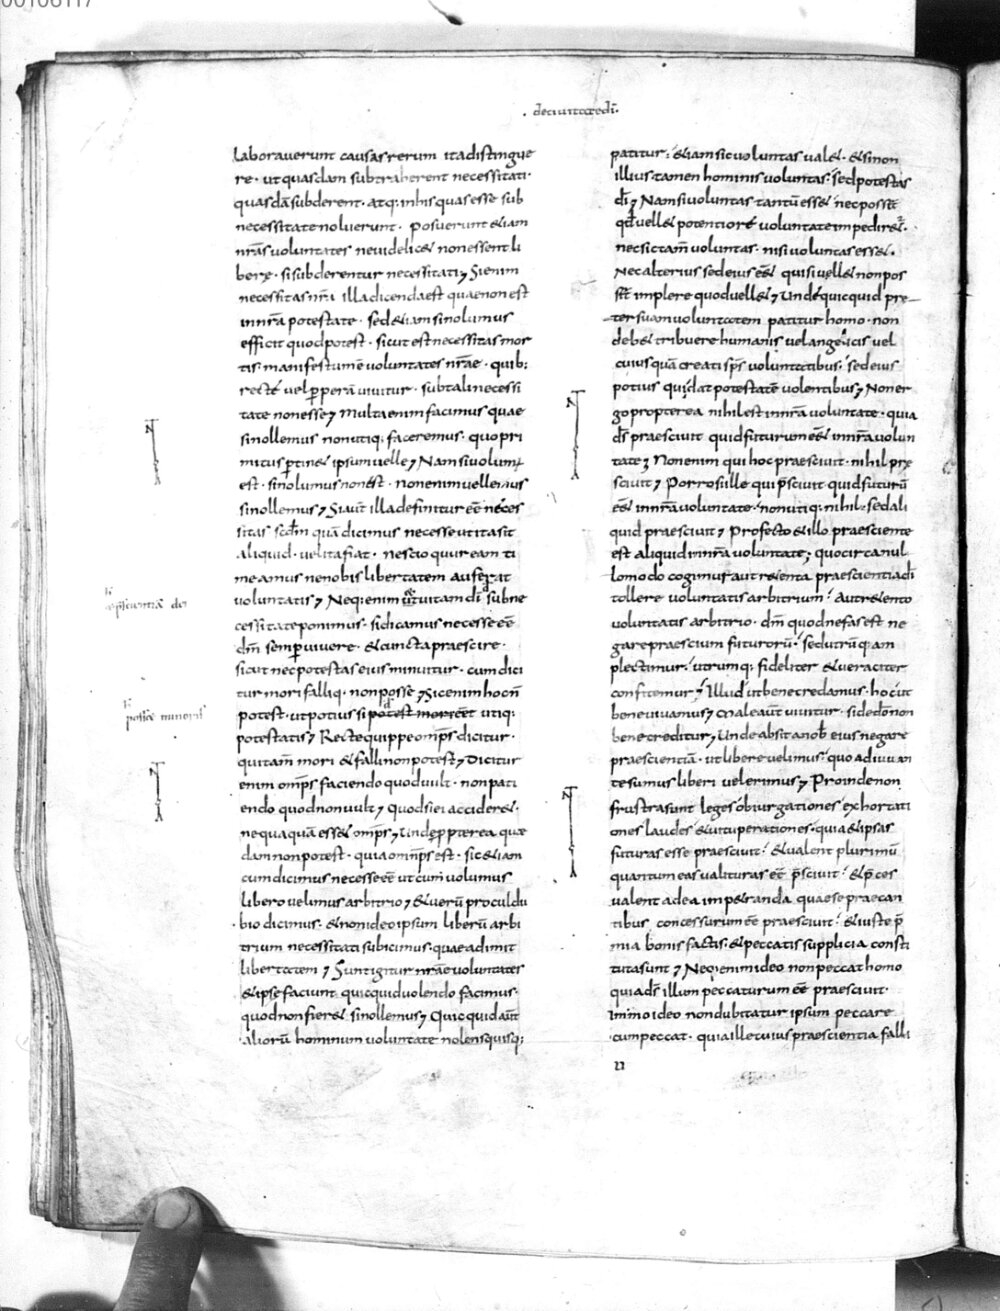 00106117
. deciuitatedi.
laborauerunt causasrerum itadistingue
re. utquasdam subtraherent necessitati.
quasdāsubderent. atq: inhis quasesse sub
necessitatenoluerunt. posuerunt &iam
nr̄asuoluntates neuidelic& nonessentli
berę. sisubderentur necessitati; Sienim
necessitasnr̄i illadicendaest quaenonest
innr̄a potestate. sed&iamsinolumus
efficit quodpotest. sicut estnecessitas mor
tis manifestumē uoluntates nr̄ae. quib:
recte uelꝑperā uiuitur. subtalinecessi
tate nonesse; Multaenim facimus quae
sinollemus nonutiq: faceremus. quopri
mitus ꝑtin& ipsumuelle; Namsiuolum;
est. sinolumus nonest. nonenimuellemus
sinollemus; Siaut̄ illadefinitur eē neces
sitas scdm̄ quā dicimus necesseutitasit
aliquid. uelitafiat. nescio qur eam ti
meamus nenobis libertatem auferat
uoluntatis; Neq:enim &uitamdī subne
cessitateponimus. sidicamus necesseeē
dm̄ semꝑuiuere. &cunctapraescire.
sicut necpotestas eius minuitur. cumdici
tur mori falliq: nonposse; Sicenim hocn̄
potest. utpotius si potest moreret utiq:
potestatis; Rectequippeomp̄s dicitur.
quitam̄ mori &fallinonpotest; Dicitur
enim omp̄s faciendo quoduult. nonpati
endo quodnonuult; quodsiei accider&.
nequaquā ess& omp̄s; Undeꝑpterea quę
damnonpotest. quiaomp̄s est. sic&iam
cumdicimus necesseeē ut cum uolumus
libero uelimus arbitrio; &uerū proculdu
bio dicimus. &nonideo ipsum liberū arbi
trium necessitati subicimus. quaeadimit
libertatem; Suntigitur nr̄aeuoluntates
&ipsefaciunt quicquiduolendo facimus.
quodnonfier& sinollemus; Quicquidaut̄
aliorū hominum uoluntate nolensquisq:
p̄scientiā dei
posse minoris
patitur: &iamsicuoluntas ual&. &sinon
illius tamen hominis uoluntas. sedpotestas
dī; Namsiuoluntas tantū ess& necposs&
qd̄ uell& potentiorē uoluntate impedir&.
necsictam̄ uoluntas. nisi uoluntas ess&.
Necalterius sedeius ēē& quisiuell& nonpos
s& implere quoduell&; Undequicquid pre
ter suamuoluntatem patitur homo. non
deb& tribuere humanis uelangelicis uel
cuiusquā creatisp̄s uoluntatibus. sedeius
potius quidat potestatē uolentibus; Noner
gopropterea nihilest innr̄auoluntate. quia
d̄s praesciuit quidfuturumess& innr̄auolun
tate; Nonenim qui hocpraesciuit. nihil prę
sciuit; Porrosiille quip̄sciuit quidfuturū
ēē& innr̄auoluntate. nonutiq: nihil. sedali
quid praesciuit; Profecto&illo praesciente
est aliquidinnr̄a uoluntate; quocircanul
lomodo cogimur aut r&enta praescientiadī
tollere uoluntatis arbitrium. Autr&ento
uoluntatis arbitrio. dm̄ quodnefasest ne
garepraescium futurorū. sedutrūq: am
plectimur. utrumq: fideliter &ueraciter
confitemur; Illud utbenecredamus. hocut
beneuiuamus; Maleaut̄ uiuitur. sidedōnon
benecreditur; Undeabsit anob̄ eius negare
praescientiā. utlibereuelimus. quo adiuuan
tesumus liberi uelerimus; Proindenon
frustrasunt leges obiurgationes exhortati
ones laudes &uituperationes. quia&ipsas
futuras esse praesciuit. &ualent plurimū
quantumeasualituras eē p̄sciuit. &p̄ces
ualent adea impetranda quaesepraecan
tibus concessurumeē praesciuit. &iuste p̄
mia bonis factis. &peccatis supplicia consti
tutasunt; Neq:enimideo nonpeccathomo
quiad̄s illum peccaturumeē praesciuit.
Immoideo nondubitatur ipsum peccare
cumpeccat. quiaillecuiuspraescientia falli